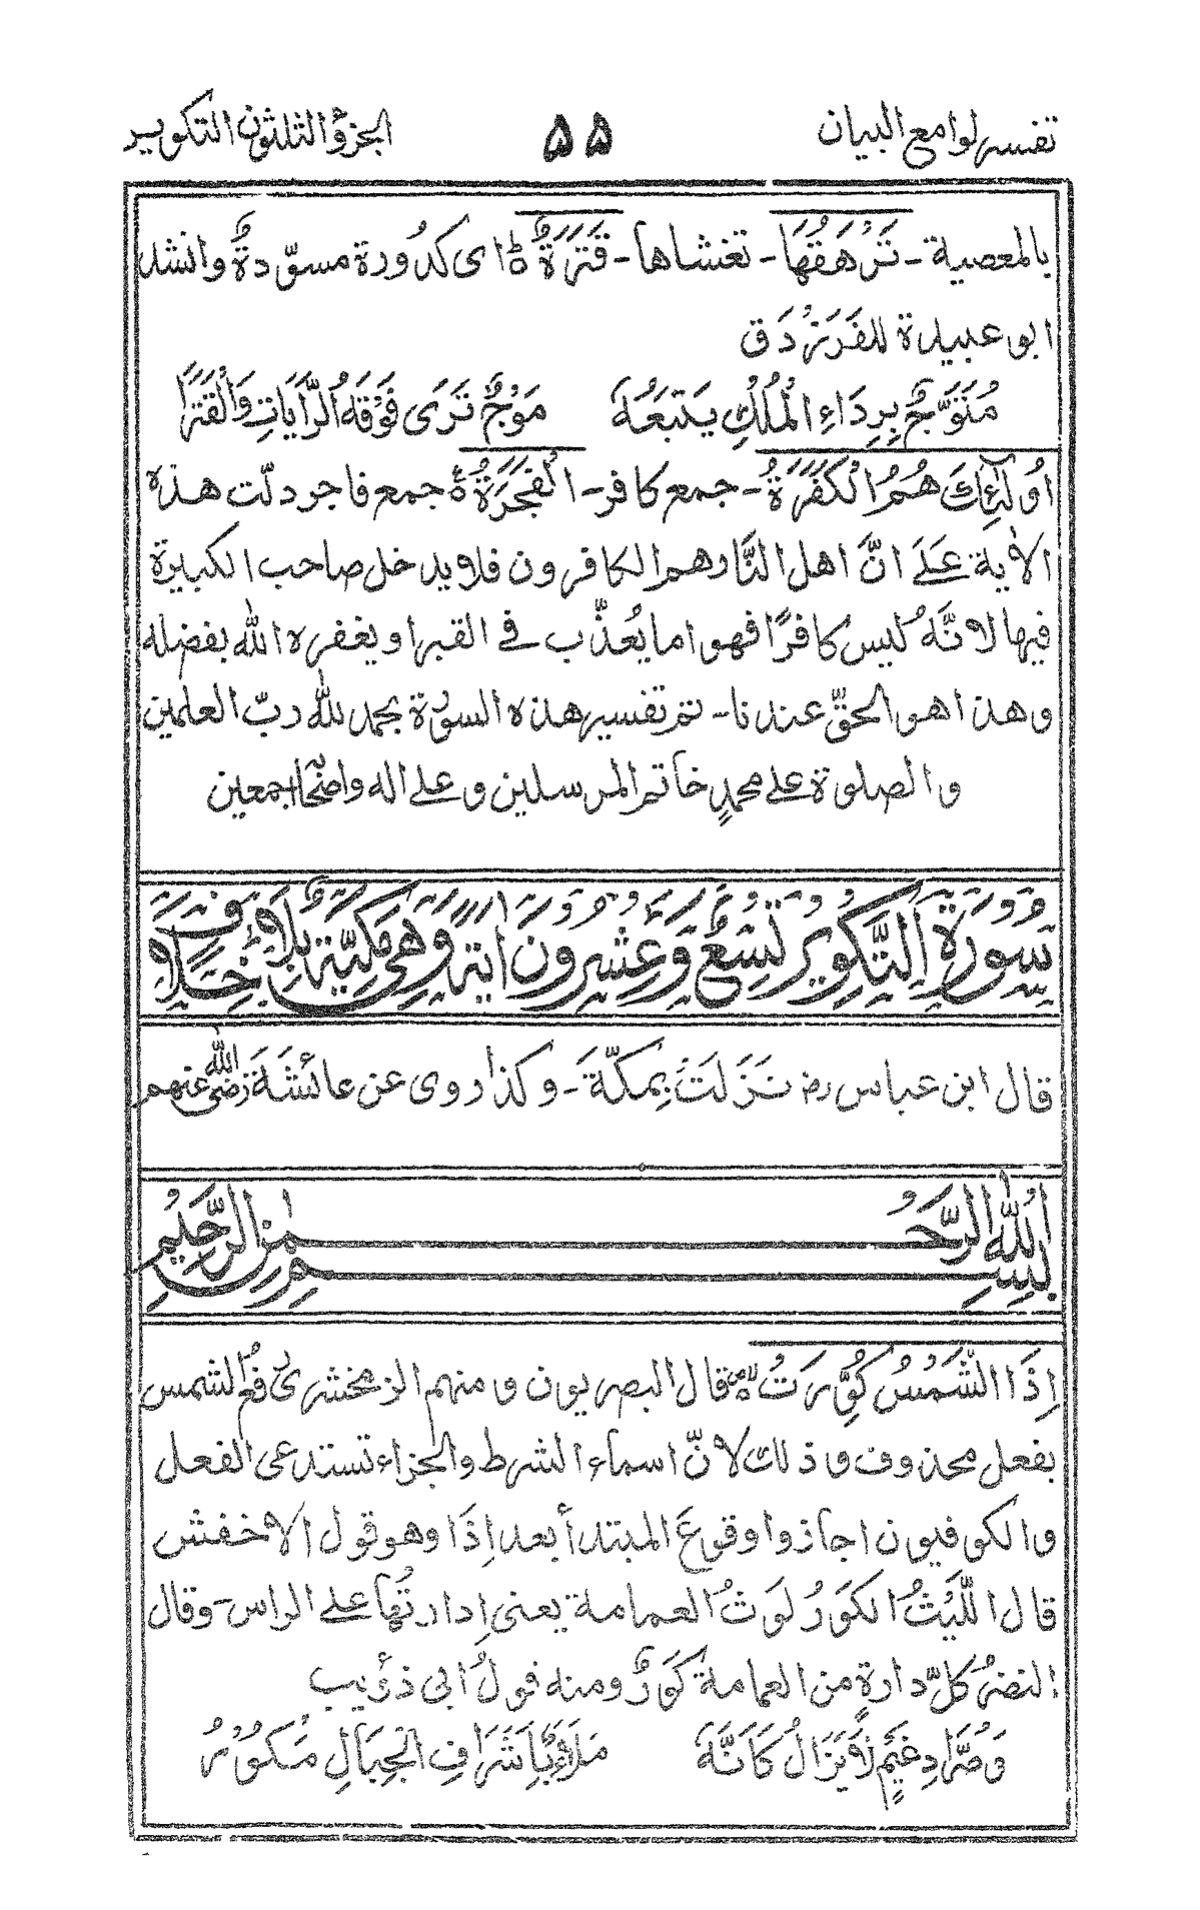 تفسير لوامع البيان ۵۵ الجزؤ الثلثون التكوير
بالمعصية - تَرْهَقُهَا - تغشاها - قَتَرَةٌ ای كدُورة مسوّدةٌ وانشد
ابو عبيدة للفَرَزْدَق
مُتَوَّجٌ بِرِدَاءِ الْمُلْكِ يَتْبَعُهُ مَوْجٌ تَرَى فَوْقَهُ الرَّايَاتِ وَالْقَتَرَا
اُولٰٓئِكَ هُمُ الْكَفَرَةُ - جمع كافر - الْفَجَرَةُ جمع فاجر دلّت هذه
الاٰية عَلَى انَّ اهل النَّار هم الكافرون فلا يدخل صاحب الكبيرة
فيها لانَّهُ ليس كافرًا فهو اما يُعذَّب فى القبر او يغفره الله بفضله
وهذا هو الحقّ عندنا - تم تفسير هذه السورة بحمد لله ربّ العلمين
والصلوة على محمدٍ خاتم المرسلين وعلى اله واصحٰبه اجمعين
سُوْرَةُ التَّكْوِيْرِ تِسْعٌ وَّعِشْرُوْنَ اٰيَةً وَّهِىَ مَكِّيَّةٌ بِلَا خِلَافٍ
قال ابن عباس رض نَزَلَتْ بِمكّةَ - وكذا روى عن عائشَةَ رضى الله عنهم
بِسْمِ اللهِ الرَّحْمٰنِ الرَّحِيْمِ
اِذَا الشَّمْسُ كُوِّرَتْ قال البصريون ومنهم الزمخشرىّ رُفع الشمس
بفعل محذوف وذلك لانّ اسماء الشرط والجزاء تستدعى الفعل
والكوفيون اجازوا وقوعَ المبتدأ بعد اِذَا وهو قول الاخفش
قال اللَّيْثُ الكَوَرُ لَوَثُ العمامة يعنى اِدارتُها على الراس - وقال
النضرُ كلّ دارةٍ من العمامة كَوَرٌ ومنه قولُ ابى ذؤيب
وَصُرَّادِ غَيْمٍ لَا يَزَالُ كَاَنَّهُ مَلَاءٌ بِاَشْرَافِ الْجِبَالِ مَكُوْرُ